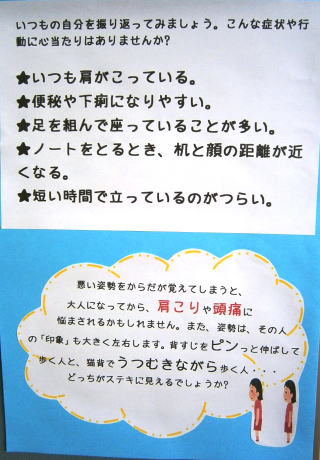 いつもの自分を振り返ってみましょう。こんな症状や行
動に心当たりはありませんか?
★いつも肩がこっている。
★便秘や下痢になりやすい。
★足を組んで座っていることが多い。
★ノートをとるとき、机と顔の距離が近
くなる。
★短い時間で立っているのがつらい。
悪い姿勢をからだが覚えてしまうと、
大人になってから、肩こりや頭痛に
悩まされるかもしれません。また、姿勢は、その人
の「印象」も大きく左右します。背すじをピンっと伸ばして
歩く人と、猫背でうつむきながら歩く人・・・
どっちがステキに見えるでしょうか?